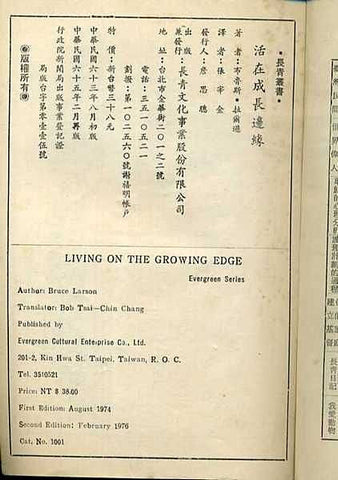 •長青叢書•
活在成長邊緣
著者：布魯斯•拉爾遜
譯者：張宰金
發行人：詹思聰
出版
兼發行：長青文化事業股份有限公司
地址：台北市金華街二〇一之二號
電話：三五一〇五二一
劃撥：第一〇二五六〇號謝禧明帳戶
特價：新台幣三十八元
中華民國六十三年八月初版
中華民國六十五年二月再版
行政院新聞局出版事業登記證
局版台字第零壹壹伍號
版權所有
LIVING ON THE GROWING EDGE
Evergreen Series
Author: Bruce Larson
Translator: Bob Tsai-Chin Chang
Published by
Evergreen Cultural Enterprise Co., Ltd.
201-2, Kin Hwa St. Taipei, Taiwan, R. O. C.
Tel. 3510521
Price: NT $ 38.00
First Edition: August 1974
Second Edition: February 1976
Cat. No. 1001
建立基督
長青日記
我愛動物